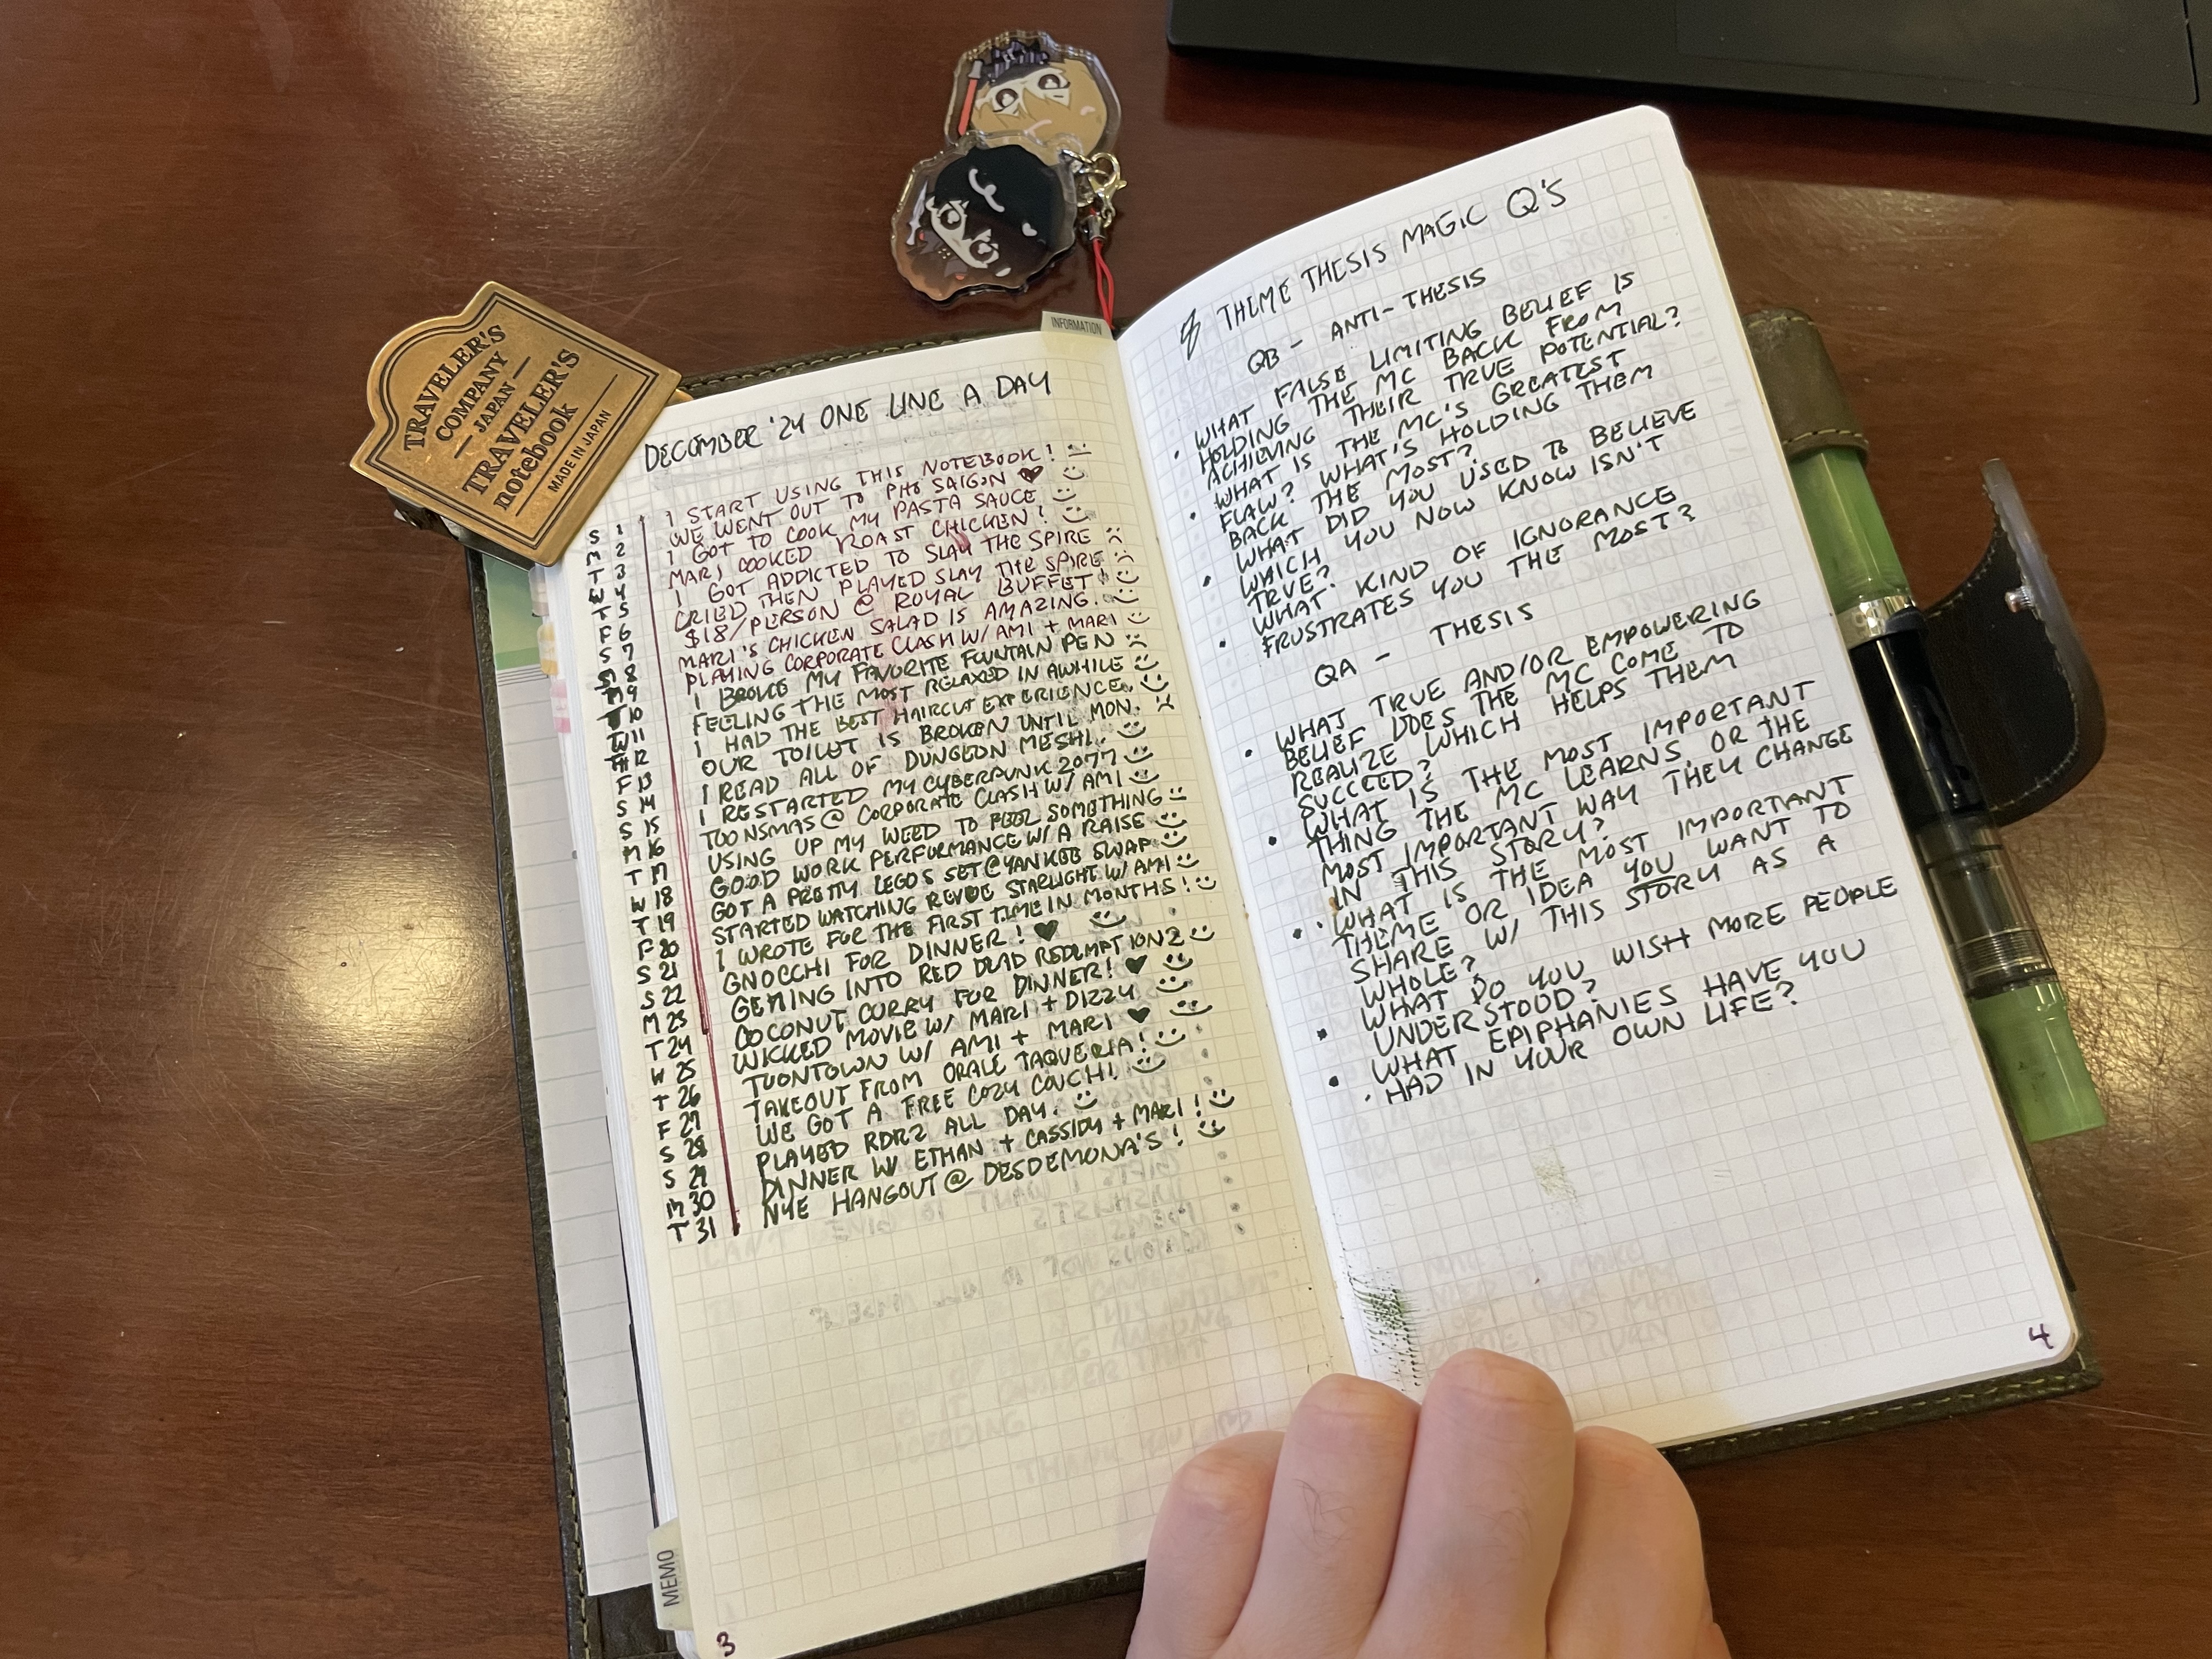 TRAVELER'S
COMPANY
— JAPAN —
TRAVELER'S
notebook
MADE IN JAPAN
INFORMATION
DECEMBER '24 ONE LINE A DAY
S 1 I START USING THIS NOTEBOOK!
M 2 WE WENT OUT TO PHO SAIGON ♥
T 3 I GOT TO COOK MY PASTA SAUCE
W 4 MARI COOKED ROAST CHICKEN!
T 5 I GOT ADDICTED TO SLAY THE SPIRE
F 6 CRIED THEN PLAYED SLAY THE SPIRE
S 7 $18/PERSON @ ROYAL BUFFET!
S 8 MARI'S CHICKEN SALAD IS AMAZING.
M 9 PLAYING CORPORATE CLASH W/ AMI + MARI
T 10 I BROKE MY FAVORITE FOUNTAIN PEN
W 11 FEELING THE MOST RELAXED IN AWHILE
TH 12 I HAD THE BEST HAIRCUT EXPERIENCE.
F 13 OUR TOILET IS BROKEN UNTIL MON.
S 14 I READ ALL OF DUNGEON MESHI.
S 15 I RESTARTED MY CYBERPUNK 2077
M 16 TOONSMAS @ CORPORATE CLASH W/ AMI
T 17 USING UP MY WEED TO FEEL SOMETHING
W 18 GOOD WORK PERFORMANCE W/ A RAISE
T 19 GOT A PRETTY LEGOS SET @ YANKEE SWAP
F 20 STARTED WATCHING REVUE STARLIGHT W/ AMI
S 21 I WROTE FOR THE FIRST TIME IN MONTHS!
S 22 GNOCCHI FOR DINNER! ♥
M 23 GETTING INTO RED DEAD REDEMPTION 2
T 24 COCONUT CURRY FOR DINNER! ♥
W 25 WICKED MOVIE W/ MARI + DIZZY
T 26 TOONTOWN W/ AMI + MARI ♥
F 27 TAKEOUT FROM ORALE TAQUERIA!
S 28 WE GOT A FREE COZY COUCH!
S 29 PLAYED RDR2 ALL DAY.
M 30 DINNER W/ ETHAN + CASSIDY + MARI!
T 31 NYE HANGOUT @ DESDEMONA'S!
MEMO
3
THEME THESIS MAGIC Q'S
QB - ANTI-THESIS
• WHAT FALSE LIMITING BELIEF IS
HOLDING THE MC BACK FROM
ACHIEVING THEIR TRUE POTENTIAL?
• WHAT IS THE MC'S GREATEST
FLAW? WHAT'S HOLDING THEM
BACK THE MOST?
• WHAT DID YOU USED TO BELIEVE
WHICH YOU NOW KNOW ISN'T
TRUE?
• WHAT KIND OF IGNORANCE
FRUSTRATES YOU THE MOST?
QA - THESIS
• WHAT TRUE AND/OR EMPOWERING
BELIEF DOES THE MC COME TO
REALIZE WHICH HELPS THEM
SUCCEED?
• WHAT IS THE MOST IMPORTANT
THING THE MC LEARNS, OR THE
MOST IMPORTANT WAY THEY CHANGE
IN THIS STORY?
• WHAT IS THE MOST IMPORTANT
THEME OR IDEA YOU WANT TO
SHARE W/ THIS STORY AS A
WHOLE?
• WHAT DO YOU WISH MORE PEOPLE
UNDERSTOOD?
• WHAT EPIPHANIES HAVE YOU
HAD IN YOUR OWN LIFE?
4